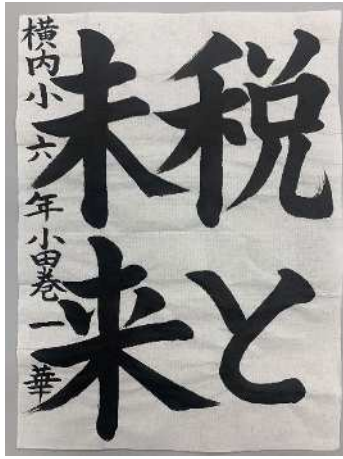 税と
未来
横内小 六年 小田巻一華